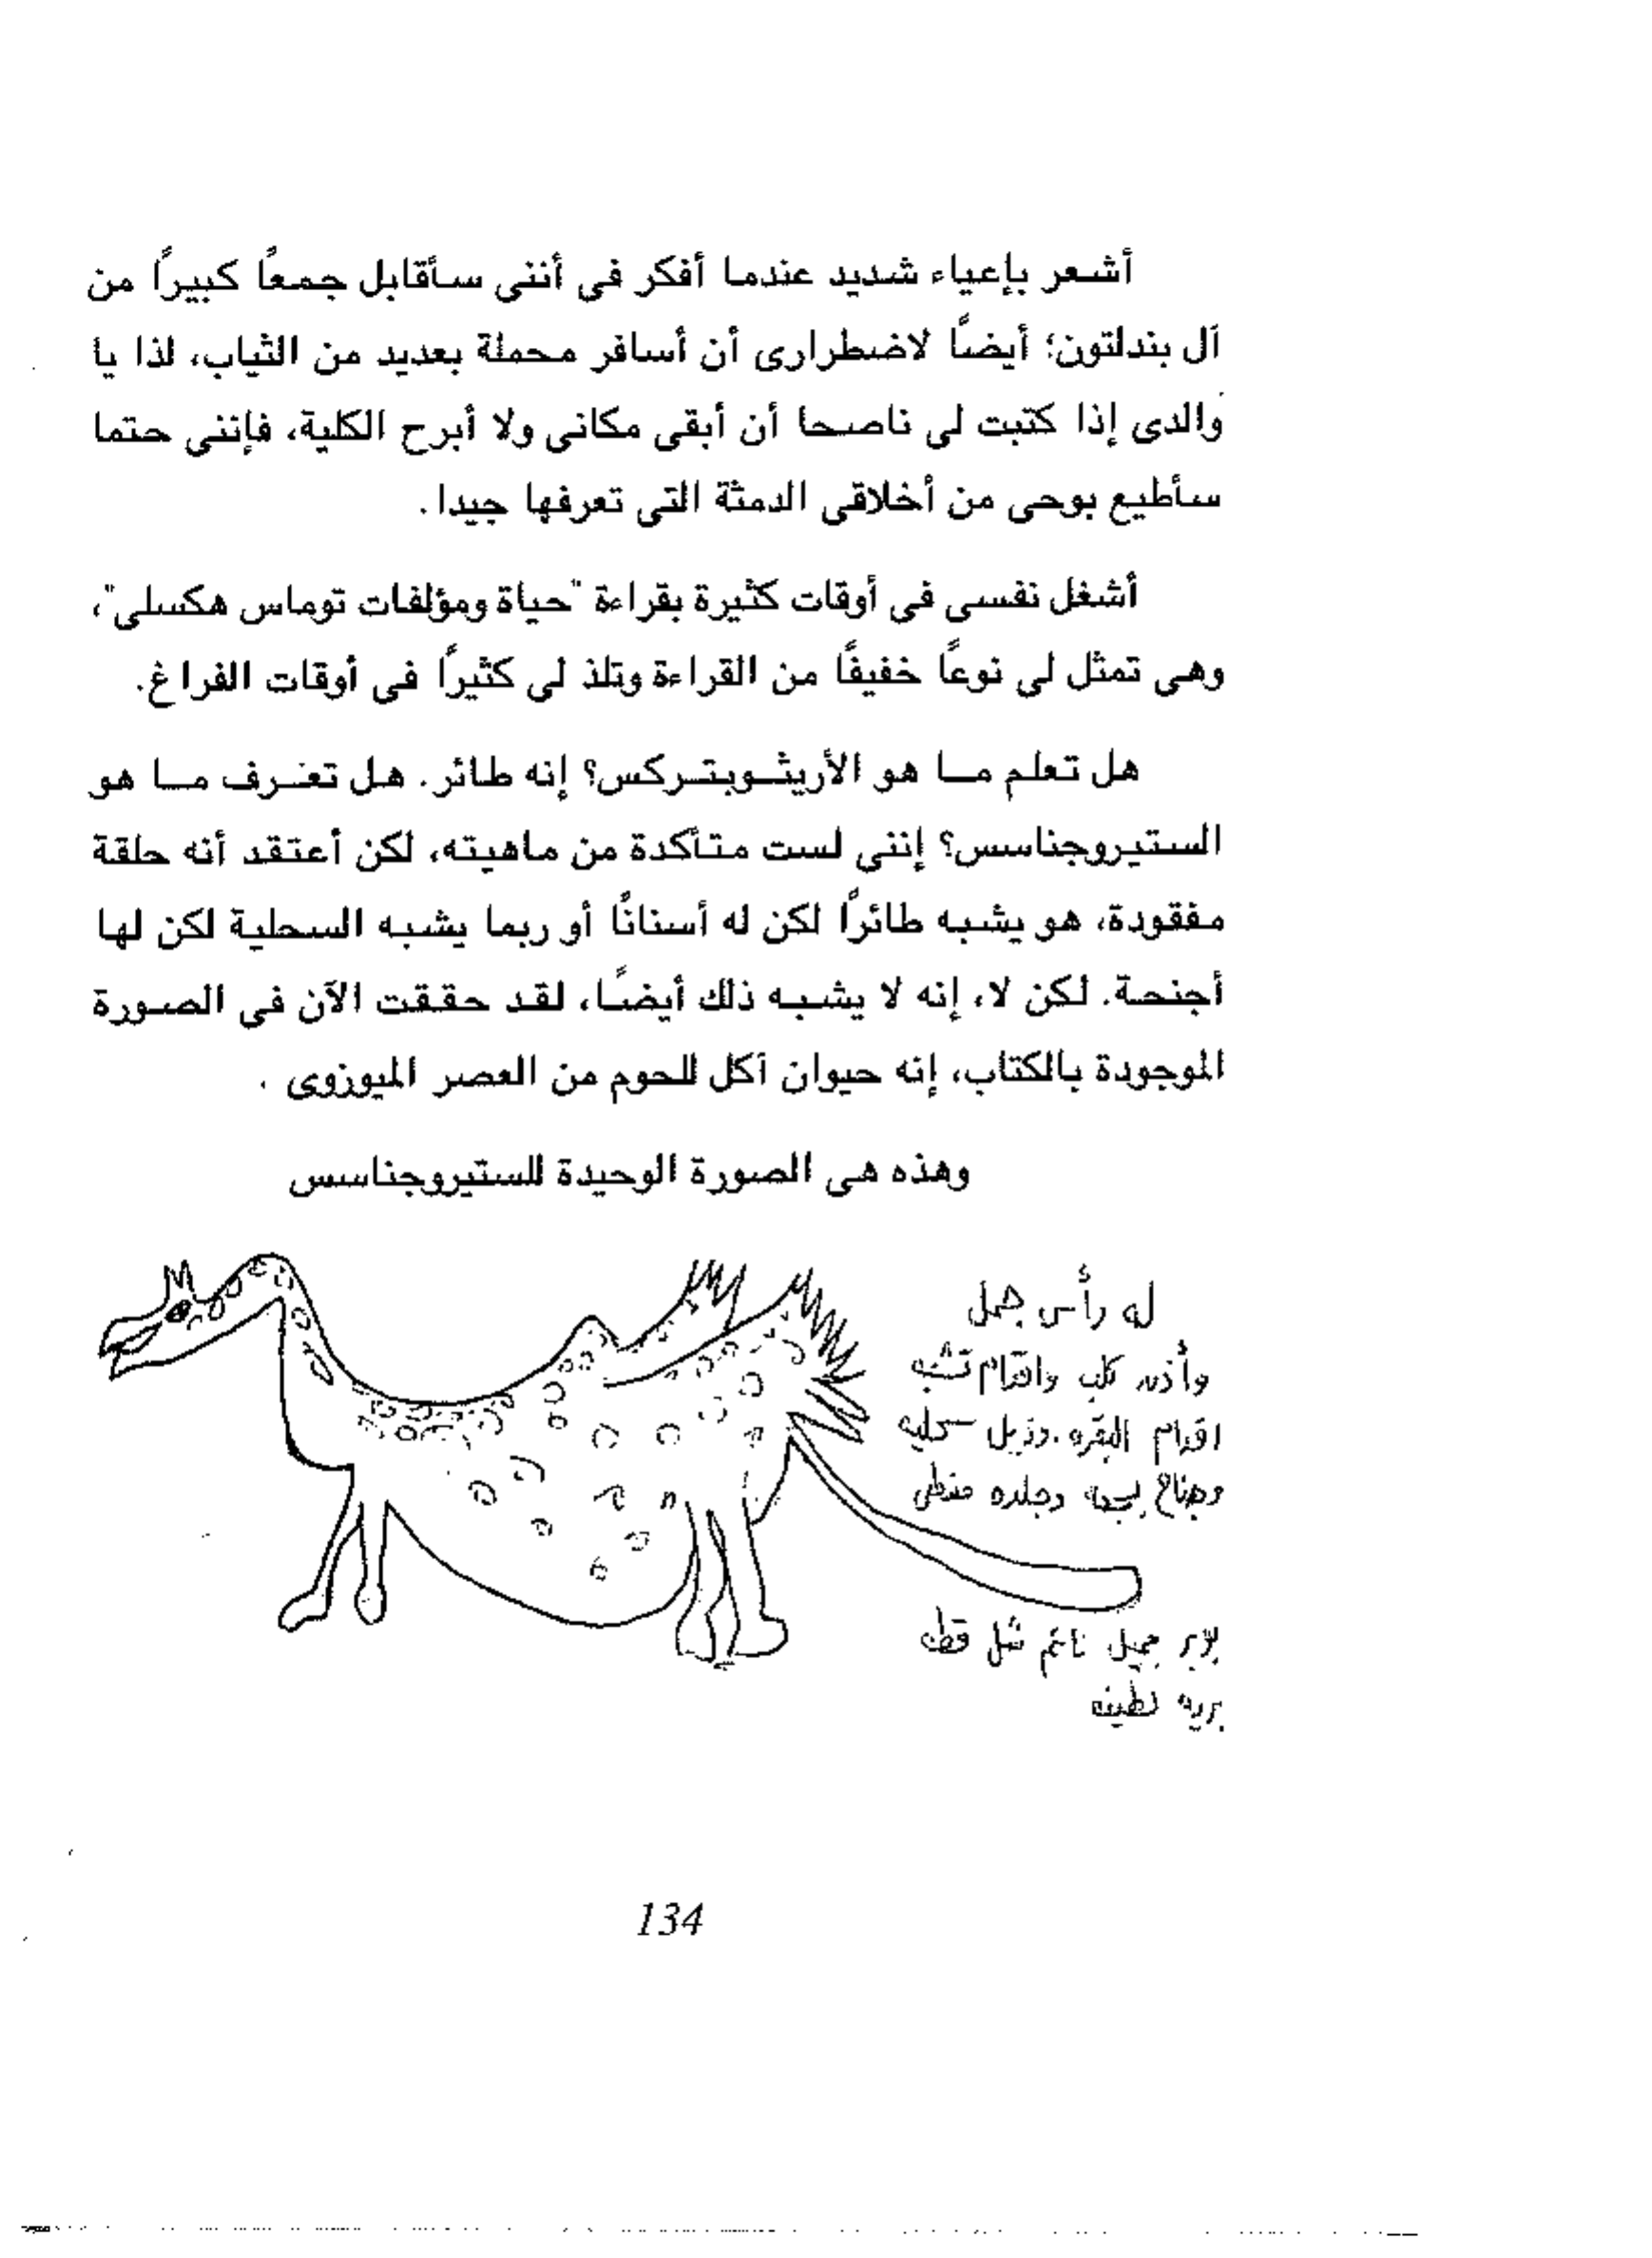 أشعر بإعياء شديد عندما أفكر فى أننى سأقابل جمعاً كبيراً من
آل بندلتون؛ أيضاً لاضطرارى أن أسافر محملة بعديد من الثياب، لذا يا
والدى إذا كتبت لى ناصحا أن أبقى مكانى ولا أبرح الكلية، فإننى حتما
سأطيع بوحى من أخلاقى الدمثة التى تعرفها جيدا .
أشغل نفسى فى أوقات كثيرة بقراءة "حياة ومؤلفات توماس هكسلى"،
وهى تمثل لى نوعاً خفيفًا من القراءة وتلذ لى كثيرًا فى أوقات الفراغ.
هل تعلم ما هو الأريثوبتركس؟ إنه طائر. هل تعرف ما هو
الستيروجناسس؟ إننى لست متأكدة من ماهيته، لكن أعتقد أنه حلقة
مفقودة، هو يشبه طائرًا لكن له أسنانًا أو ربما يشبه السحلية لكن لها
أجنحة. لكن لا، إنه لا يشبه ذلك أيضًا، لقد حققت الآن فى الصورة
الموجودة بالكتاب، إنه حيوان آكل للحوم من العصر الميوزوى .
وهذه هى الصورة الوحيدة للستيروجناسس
له رأس جمل
وأذن كلب واقدام تشبه
اقدام البقره. وذيل سحليه
وجناح بجعه وجلده مغطى
جميل ناعم مثل قطه
بريه لطيفه
134